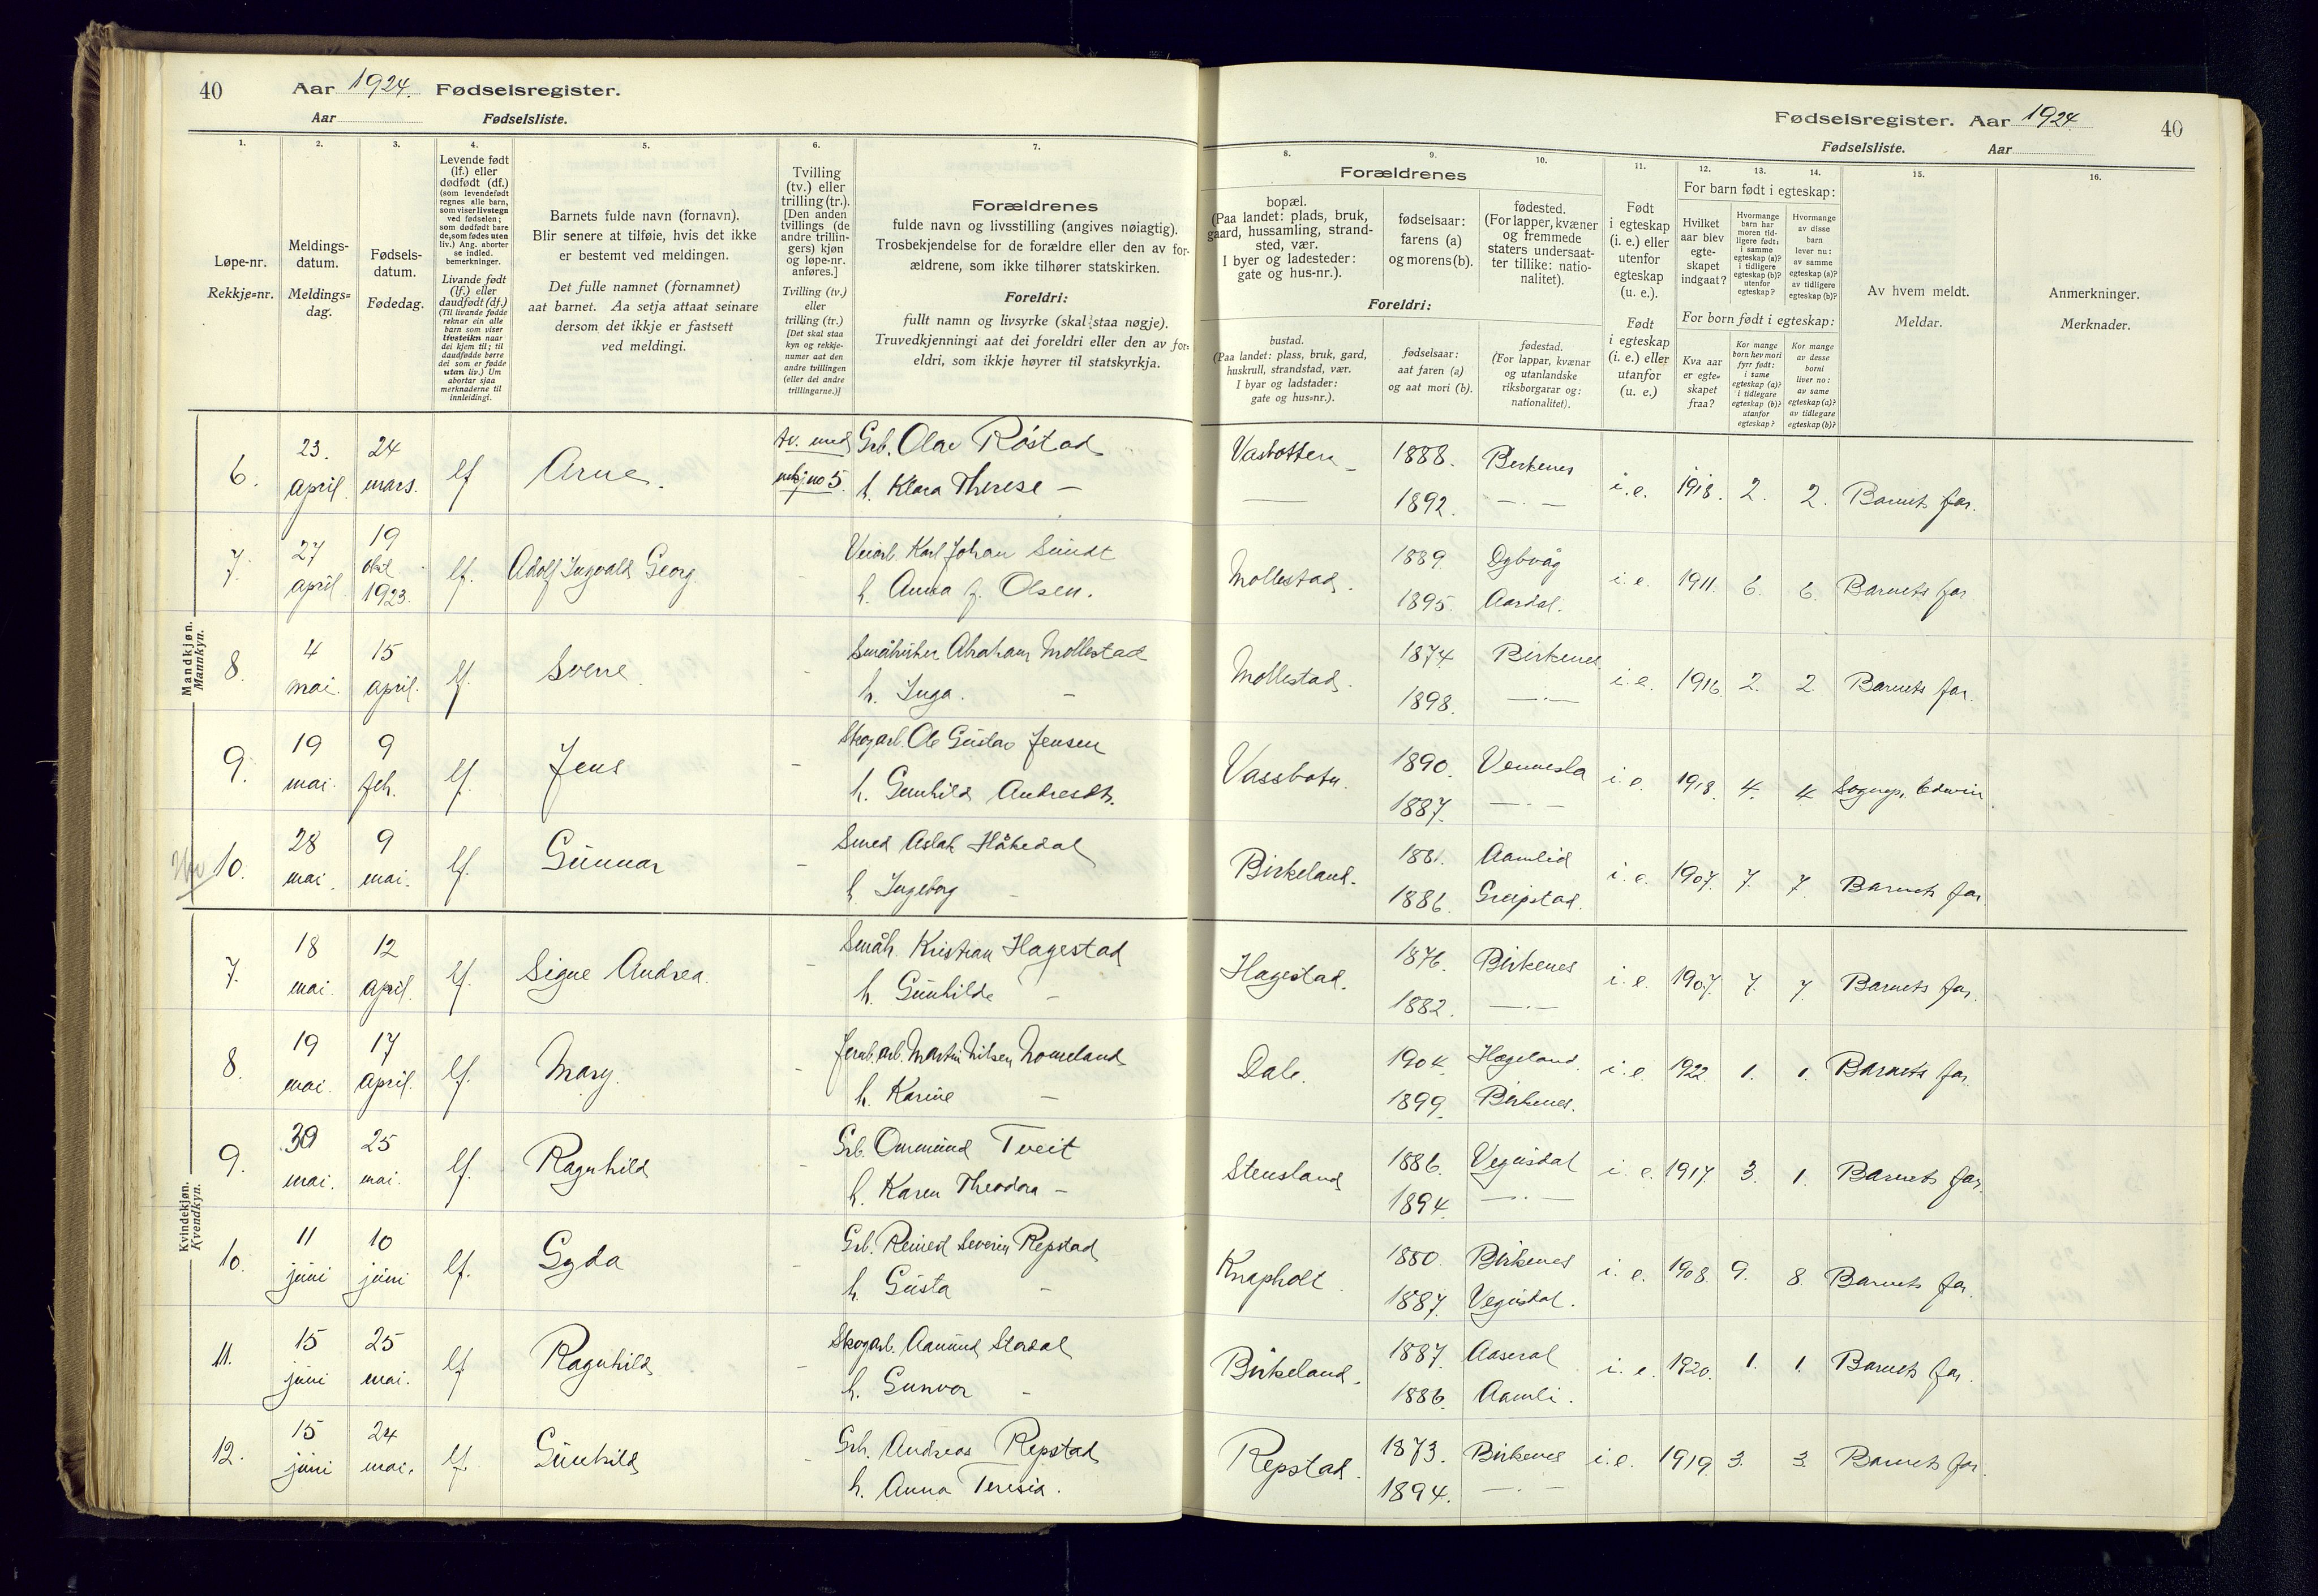 40 Aar 1924. Fødselsregister.
Aar Fødselsliste.
1. 2. 3. 4. 5. 6. 7.
Løpe-nr.
Rekkje=nr.
Meldings-
datum.
Meldings=
dag.
Fødsels-
datum.
Fødedag.
Levende født
(lf.) eller
dødfødt (df.)
(som levendefødt
regnes alle barn,
som viser livstegn
ved fødselen;
som dødfødt bare
de, som fødes uten
liv.) Ang. aborter
se indled.
bemerkninger.
Livande født
(lf.) eller
daudfødt (df.)
(Til livande fødde
reknar ein alle
barn som viser
livsteikn naar
dei kjem til; til
daudfødde berre
dei som er fødde
utan liv.) Um
abortar sjaa
merknaderne til
innleidingi.
Barnets fulde navn (fornavn).
Blir senere at tilføie, hvis det ikke
er bestemt ved meldingen.
Det fulle namnet (fornamnet)
aat barnet. Aa setja attaat seinare
dersom det ikkje er fastsett
ved meldingi.
Tvilling
(tv.) eller
trilling (tr.).
[Den anden
tvillings (de
andre trillin-
gers) kjøn
og løpe-nr.
anføres.]
Tvilling (tv.)
eller
trilling (tr.)
[Det skal staa
kyn og rekkje-
numer aat den
andre tvillingen
(eller dei andre
trillingarne.)]
Forældrenes
fulde navn og livsstilling (angives nøiagtig).
Trosbekjendelse for de forældre eller den av for-
ældrene, som ikke tilhører statskirken.
Foreldri:
fullt namn og livsyrke (skal staa nøgje).
Truvedkjenningi aat dei foreldri eller den av for-
eldri, som ikkje høyrer til statskyrkja.
Mandkjøn.
Mannkyn.
6. 23. april. 24 mars. lf Arne. tv. med rekj. no 5. Grb. Olav Røstad
h. Klara Therese —
7. 27 april. 19 okt. 1923. lf. Adolf Ingvald Georg. Veiarb. Karl Johan Sundt
h. Anna f. Olsen.
8. 4 mai. 15 april. lf. Sverre. Småbruker Abraham Mollestad
h. Inga. —
9. 19 mai. 9 feb. lf. Jens - Skogarb. Ole Gustav Jensen
h. Gunhild Andresdt.
10. 28 mai. 9 mai. lf. Gunnar - Smed Aslak Håkedal
h. Ingeborg -
Kvindekjøn.
Kvendkyn.
7. 18 mai. 12 april. lf. Signe Andrea. - Småb. Kristian Hagestad
h. Gunhilde —
8. 19 mai. 17 april. lf. Mary. - Jernb. arb. Martin Nilsen Homeland
h. Karine —
9. 30 mai. 25 mai. lf. Ragnhild - Grb. Ommund Tveit
h. Karen Theodora —
10. 11 juni 10 juni lf. Gyda - Grb. Reinert Severin Repstad
h. Gusta -
11. 15 juni 25 mai. lf Ragnhild - Skogarb. Aanund Stordal
h. Gunvor -
12. 15 juni 24 mai. lf. Gunhild - Grb. Andreas Repstad
h. Anna Teresia.
Fødselsregister. Aar 1924. 40
Fødselsliste. Aar
8. 9. 10. 11. 12. 13. 14. 15. 16.
Forældrenes
bopæl.
(Paa landet: plads, bruk,
gaard, hussamling, strand-
sted, vær.
I byer og ladesteder:
gate og hus-nr.).
fødselsaar:
farens (a)
og morens (b).
fødested.
(For lapper, kvæner
og fremmede
staters undersaat-
ter tillike: natio-
nalitet).
Foreldri:
bustad.
(Paa landet: plass, bruk, gard,
huskrull, strandstad, vær.
I byar og ladstader:
gate og hus=nr.).
fødselsaar:
aat faren (a)
og aat mori (b).
fødestad.
(For lappar, kvænar
og utanlandske
riksborgarar og:
nationalitet).
Født
i egteskap
(i. e.) eller
utenfor
egteskap
(u. e.).
Født
i egteskap
(i. e.) eller
utanfor
(u. e.)
For barn født i egteskap:
Hvilket
aar blev
egte-
skapet
indgaat?
Hvormange
barn har
moren tid-
ligere født:
i samme
egteskap (a)?
i tidligere
egteskap (b)?
utenfor
egteskap?
Hvormange
av disse
barn
lever nu:
av samme
egteskap (a)?
av tidligere
egteskap (b)?
For born født i egteskap:
Kva aar
er egte-
skapet
fraa?
Kor mange
born hev mori
fyrr født:
i same
egteskap (a)?
i tidlegare
egteskap (b)?
utanfor
egteskap?
Kor mange
av desse
borni
liver no:
av same
egteskap (a)?
av tidlegare
egteskap (b)?
Av hvem meldt.
Meldar.
Anmerkninger.
Merknader.
Vasbotten 1888. Birkenes i. e. 1918. 2. 2. Barnets far.
— 1892. —·—
Mollestad. 1889. Dybvåg i. e. 1911. 6. 6. Barnets far
1895. Aardal.
Mollestad. 1874 Birkenes i. e. 1916. 2. 2. Barnets far.
1898. —·—
Vassbotn. 1890. Vennesla i. e. 1918. 4. 4 Sognepr. Edwin.
1887. —·—
Birkeland. 1881. Aamlid i. e. 1907. 7. 7. Barnets far
1886. Greipstad.
Hagestad. 1876. Birkenes i. e. 1907. 7. 7. Barnets far.
1882. —·—
Dale. 1904. Hægeland. i. e. 1922. 1. 1. Barnets far
1899. Birkenes.
Stensland 1886. Vegusdal i. e. 1917. 3. 1. Barnets far.
1894. —·—
Knapholt. 1880. Birkenes i. e. 1908. 9. 8. Barnets far.
1887. Vegusdal.
Birkeland. 1887. Aaseral i. e. 1920. 1. 1. Barnets far.
1886. Aamli.
Repstad. 1873. Birkenes i. e. 1919. 3. 3. Barnets far.
1894. —·—